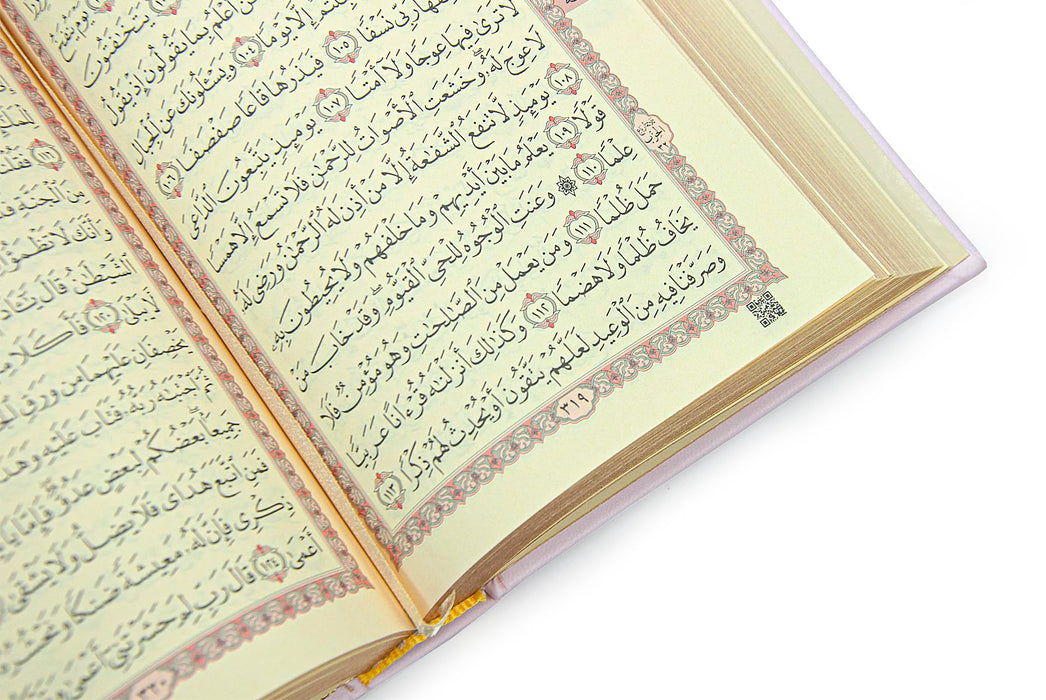 يَوْمَ يُنفَخُ
يَتَخَٰفَتُونَ
أَعْلَمُ بِمَا يَقُولُونَ إِذْ يَقُولُ
إِلَّا يَوْمًا ١٠٤ وَيَسْـَٔلُونَكَ عَنِ ٱلْجِبَالِ
رَبِّى نَسْفًا ١٠٥ فَيَذَرُهَا قَاعًا صَفْصَفًا ١٠٦
لَّا تَرَىٰ فِيهَا عِوَجًا وَلَآ أَمْتًا ١٠٧ يَوْمَئِذٍ يَتَّبِعُونَ ٱلدَّاعِىَ
لَا عِوَجَ لَهُۥ ۖ وَخَشَعَتِ ٱلْأَصْوَاتُ لِلرَّحْمَٰنِ فَلَا تَسْمَعُ إِلَّا هَمْسًا
١٠٨ يَوْمَئِذٍ لَّا تَنفَعُ ٱلشَّفَٰعَةُ إِلَّا مَنْ أَذِنَ لَهُ ٱلرَّحْمَٰنُ وَرَضِىَ لَهُۥ
قَوْلًا ١٠٩ يَعْلَمُ مَا بَيْنَ أَيْدِيهِمْ وَمَا خَلْفَهُمْ وَلَا يُحِيطُونَ بِهِۦ
عِلْمًا ١١٠ ۞ وَعَنَتِ ٱلْوُجُوهُ لِلْحَىِّ ٱلْقَيُّومِ ۖ وَقَدْ خَابَ مَنْ
حَمَلَ ظُلْمًا ١١١ وَمَن يَعْمَلْ مِنَ ٱلصَّٰلِحَٰتِ وَهُوَ مُؤْمِنٌ فَلَا
يَخَافُ ظُلْمًا وَلَا هَضْمًا ١١٢ وَكَذَٰلِكَ أَنزَلْنَٰهُ قُرْءَانًا عَرَبِيًّا
وَصَرَّفْنَا فِيهِ مِنَ ٱلْوَعِيدِ لَعَلَّهُمْ يَتَّقُونَ أَوْ يُحْدِثُ لَهُمْ ذِكْرًا ١١٣
٣١٩
١١٦ فَقُلْنَا
مِنَ ٱلْجَنَّةِ
وَأَنَّكَ لَا تَظْمَؤُا۟
ٱلشَّيْطَٰنُ قَالَ
لَّا يَبْلَىٰ ١٢٠ فَأَكَلَا
يَخْصِفَانِ عَلَيْهِمَا مِن وَرَقِ
ثُمَّ ٱجْتَبَٰهُ رَبُّهُۥ فَتَابَ عَلَيْهِ وَهَدَىٰ
جَمِيعًۢا ۖ بَعْضُكُمْ لِبَعْضٍ عَدُوٌّ ۖ فَإِمَّا
فَمَنِ ٱتَّبَعَ هُدَاىَ فَلَا يَضِلُّ وَلَا يَشْقَىٰ
ذِكْرِى فَإِنَّ لَهُۥ مَعِيشَةً ضَنكًا وَنَحْشُرُهُۥ
أَعْمَىٰ ١٢٤ قَالَ رَبِّ لِمَ حَشَرْتَنِىٓ أَعْمَىٰ
٣٢٠